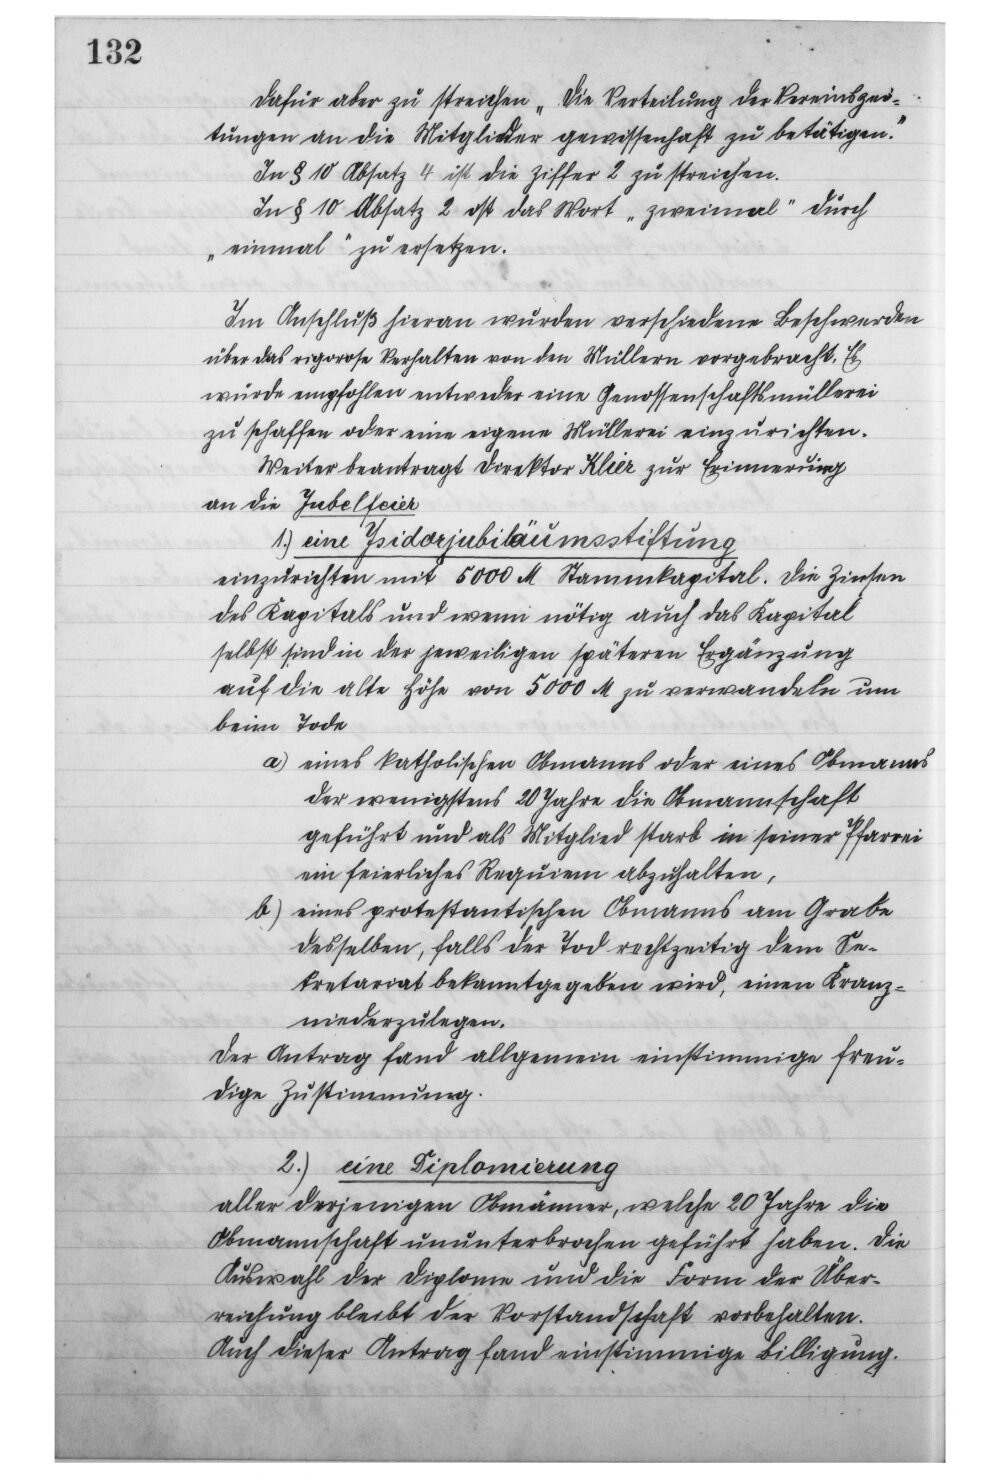 132
dafür aber zu streichen „Die Verteilung der Vereinszei-
tungen an die Mitglieder gewissenhaft zu betätigen."
In § 10 Absatz 4 ist die Ziffer 2 zu streichen.
In § 10 Absatz 2 ist das Wort „zweimal" durch
„einmal" zu ersetzen.
Im Anschluß hieran wurden verschiedene Beschwerden
über das rigorose Verhalten von den Müllern vorgebracht. Es
wurde empfohlen entweder eine Genossenschaftsmüllerei
zu schaffen oder eine eigene Müllerei einzurichten.
Weiter beantragt Direktor Klier zur Erinnerung
an die Jubelfeier
1.) eine Isidorjubiläumsstiftung
einzurichten mit 5000 M Stammkapital. Die Zinsen
des Kapitals und wenn nötig auch das Kapital
selbst sind in der jeweiligen späteren Ergänzung
auf die alte Höhe von 5000 M zu verwandeln um
beim Tode
a) eines katholischen Obmanns oder eines Obmanns
der wenigstens 20 Jahre die Obmannschaft
geführt und als Mitglied starb in seiner Pfarrei
ein feierliches Requiem abzuhalten,
b) eines protestantischen Obmanns am Grabe
desselben, falls der Tod rechtzeitig dem Se-
kretariat bekanntgegeben wird, einen Kranz-
niederzulegen.
Der Antrag fand allgemein einstimmige freu-
dige Zustimmung.
2.) eine Diplomierung
aller derjenigen Obmänner, welche 20 Jahre die
Obmannschaft ununterbrochen geführt haben. Die
Auswahl der Diplome und die Form der Über-
reichung bleibt der Vorstandschaft vorbehalten.
Auch dieser Antrag fand einstimmige Billigung.